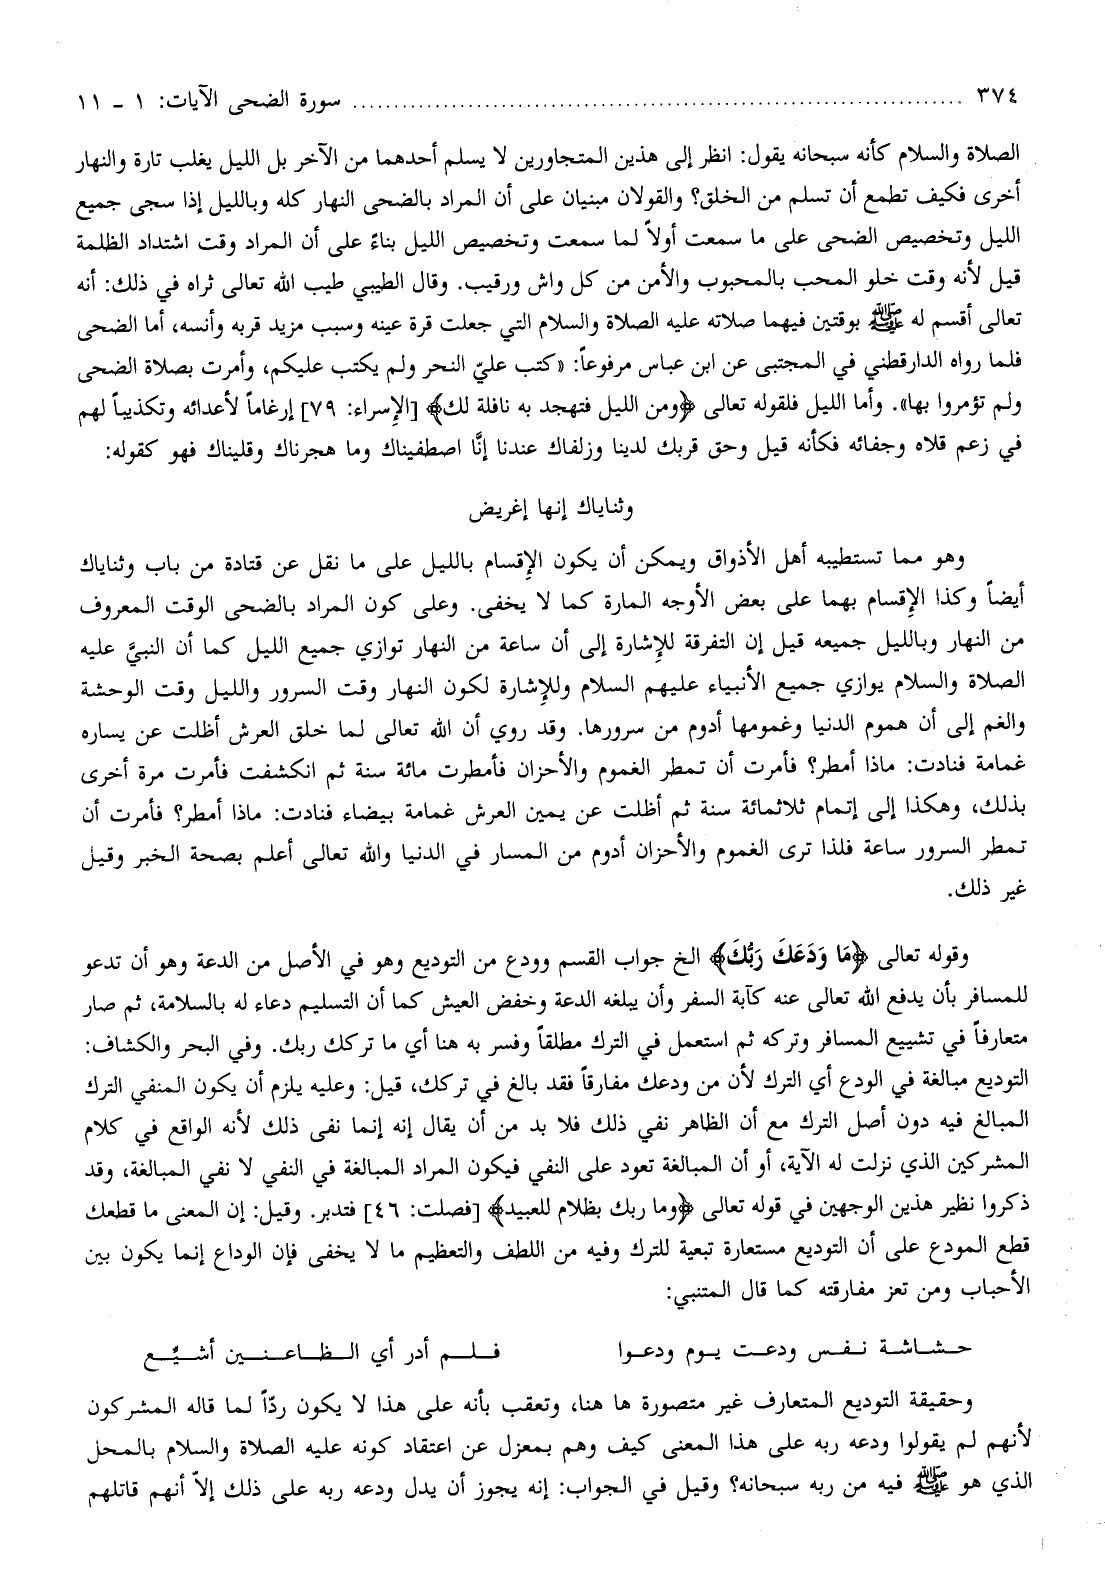 ٣٧٤ ........................................................... سورة الضحى الآيات: ١ - ١١
الصلاة والسلام كأنه سبحانه يقول: انظر إلى هذين المتجاورين لا يسلم أحدهما من الآخر بل الليل يغلب تارة والنهار
أخرى فكيف تطمع أن تسلم من الخلق؟ والقولان مبنيان على أن المراد بالضحى النهار كله وبالليل إذا سجى جميع
الليل وتخصيص الضحى على ما سمعت أولاً لما سمعت وتخصيص الليل بناءً على أن المراد وقت اشتداد الظلمة
قيل لأنه وقت خلو المحب بالمحبوب والأمن من كل واش ورقيب. وقال الطيبي طيب الله تعالى ثراه في ذلك: أنه
تعالى أقسم له ﷺ بوقتين فيهما صلاته عليه الصلاة والسلام التي جعلت قرة عينه وسبب مزيد قربه وأنسه، أما الضحى
فلما رواه الدارقطني في المجتبى عن ابن عباس مرفوعاً: «كتب عليّ النحر ولم يكتب عليكم، وأمرت بصلاة الضحى
ولم تؤمروا بها». وأما الليل فلقوله تعالى ﴿ومن الليل فتهجد به نافلة لك﴾ [الإسراء: ٧٩] إرغاماً لأعدائه وتكذيباً لهم
في زعم قلاه وجفائه فكأنه قيل وحق قربك لدينا وزلفاك عندنا إنَّا اصطفيناك وما هجرناك وقليناك فهو كقوله:
وثناياك إنها إغريض
وهو مما تستطيبه أهل الأذواق ويمكن أن يكون الإقسام بالليل على ما نقل عن قتادة من باب وثناياك
أيضاً وكذا الإقسام بهما على بعض الأوجه المارة كما لا يخفى. وعلى كون المراد بالضحى الوقت المعروف
من النهار وبالليل جميعه قيل إن التفرقة للإشارة إلى أن ساعة من النهار توازي جميع الليل كما أن النبيَّ عليه
الصلاة والسلام يوازي جميع الأنبياء عليهم السلام وللإشارة لكون النهار وقت السرور والليل وقت الوحشة
والغم إلى أن هموم الدنيا وغمومها أدوم من سرورها. وقد روي أن الله تعالى لما خلق العرش أظلت عن يساره
غمامة فنادت: ماذا أمطر؟ فأمرت أن تمطر الغموم والأحزان فأمطرت مائة سنة ثم انكشفت فأمرت مرة أخرى
بذلك، وهكذا إلى إتمام ثلاثمائة سنة ثم أظلت عن يمين العرش غمامة بيضاء فنادت: ماذا أمطر؟ فأمرت أن
تمطر السرور ساعة فلذا ترى الغموم والأحزان أدوم من المسار في الدنيا والله تعالى أعلم بصحة الخبر وقيل
غير ذلك.
وقوله تعالى ﴿مَا وَدَعَكَ رَبُّكَ﴾ الخ جواب القسم وودع من التوديع وهو في الأصل من الدعة وهو أن تدعو
للمسافر بأن يدفع الله تعالى عنه كآبة السفر وأن يبلغه الدعة وخفض العيش كما أن التسليم دعاء له بالسلامة، ثم صار
متعارفاً في تشييع المسافر وتركه ثم استعمل في الترك مطلقاً وفسر به هنا أي ما تركك ربك. وفي البحر والكشاف:
التوديع مبالغة في الودع أي الترك لأن من ودعك مفارقاً فقد بالغ في تركك، قيل: وعليه يلزم أن يكون المنفي الترك
المبالغ فيه دون أصل الترك مع أن الظاهر نفي ذلك فلا بد من أن يقال إنه إنما نفى ذلك لأنه الواقع في كلام
المشركين الذي نزلت له الآية، أو أن المبالغة تعود على النفي فيكون المراد المبالغة في النفي لا نفي المبالغة، وقد
ذكروا نظير هذين الوجهين في قوله تعالى ﴿وما ربك بظلام للعبيد﴾ [فصلت: ٤٦] فتدبر. وقيل: إن المعنى ما قطعك
قطع المودع على أن التوديع مستعارة تبعية للترك وفيه من اللطف والتعظيم ما لا يخفى فإن الوداع إنما يكون بين
الأحباب ومن تعز مفارقته كما قال المتنبي:
حشاشة نفس ودعت يوم ودعوا فلم أدر أي الظاعنين أشيّع
وحقيقة التوديع المتعارف غير متصورة ها هنا، وتعقب بأنه على هذا لا يكون ردّاً لما قاله المشركون
لأنهم لم يقولوا ودعه ربه على هذا المعنى كيف وهم بمعزل عن اعتقاد كونه عليه الصلاة والسلام بالمحل
الذي هو ﷺ فيه من ربه سبحانه؟ وقيل في الجواب: إنه يجوز أن يدل ودعه ربه على ذلك إلاّ أنهم قاتلهم